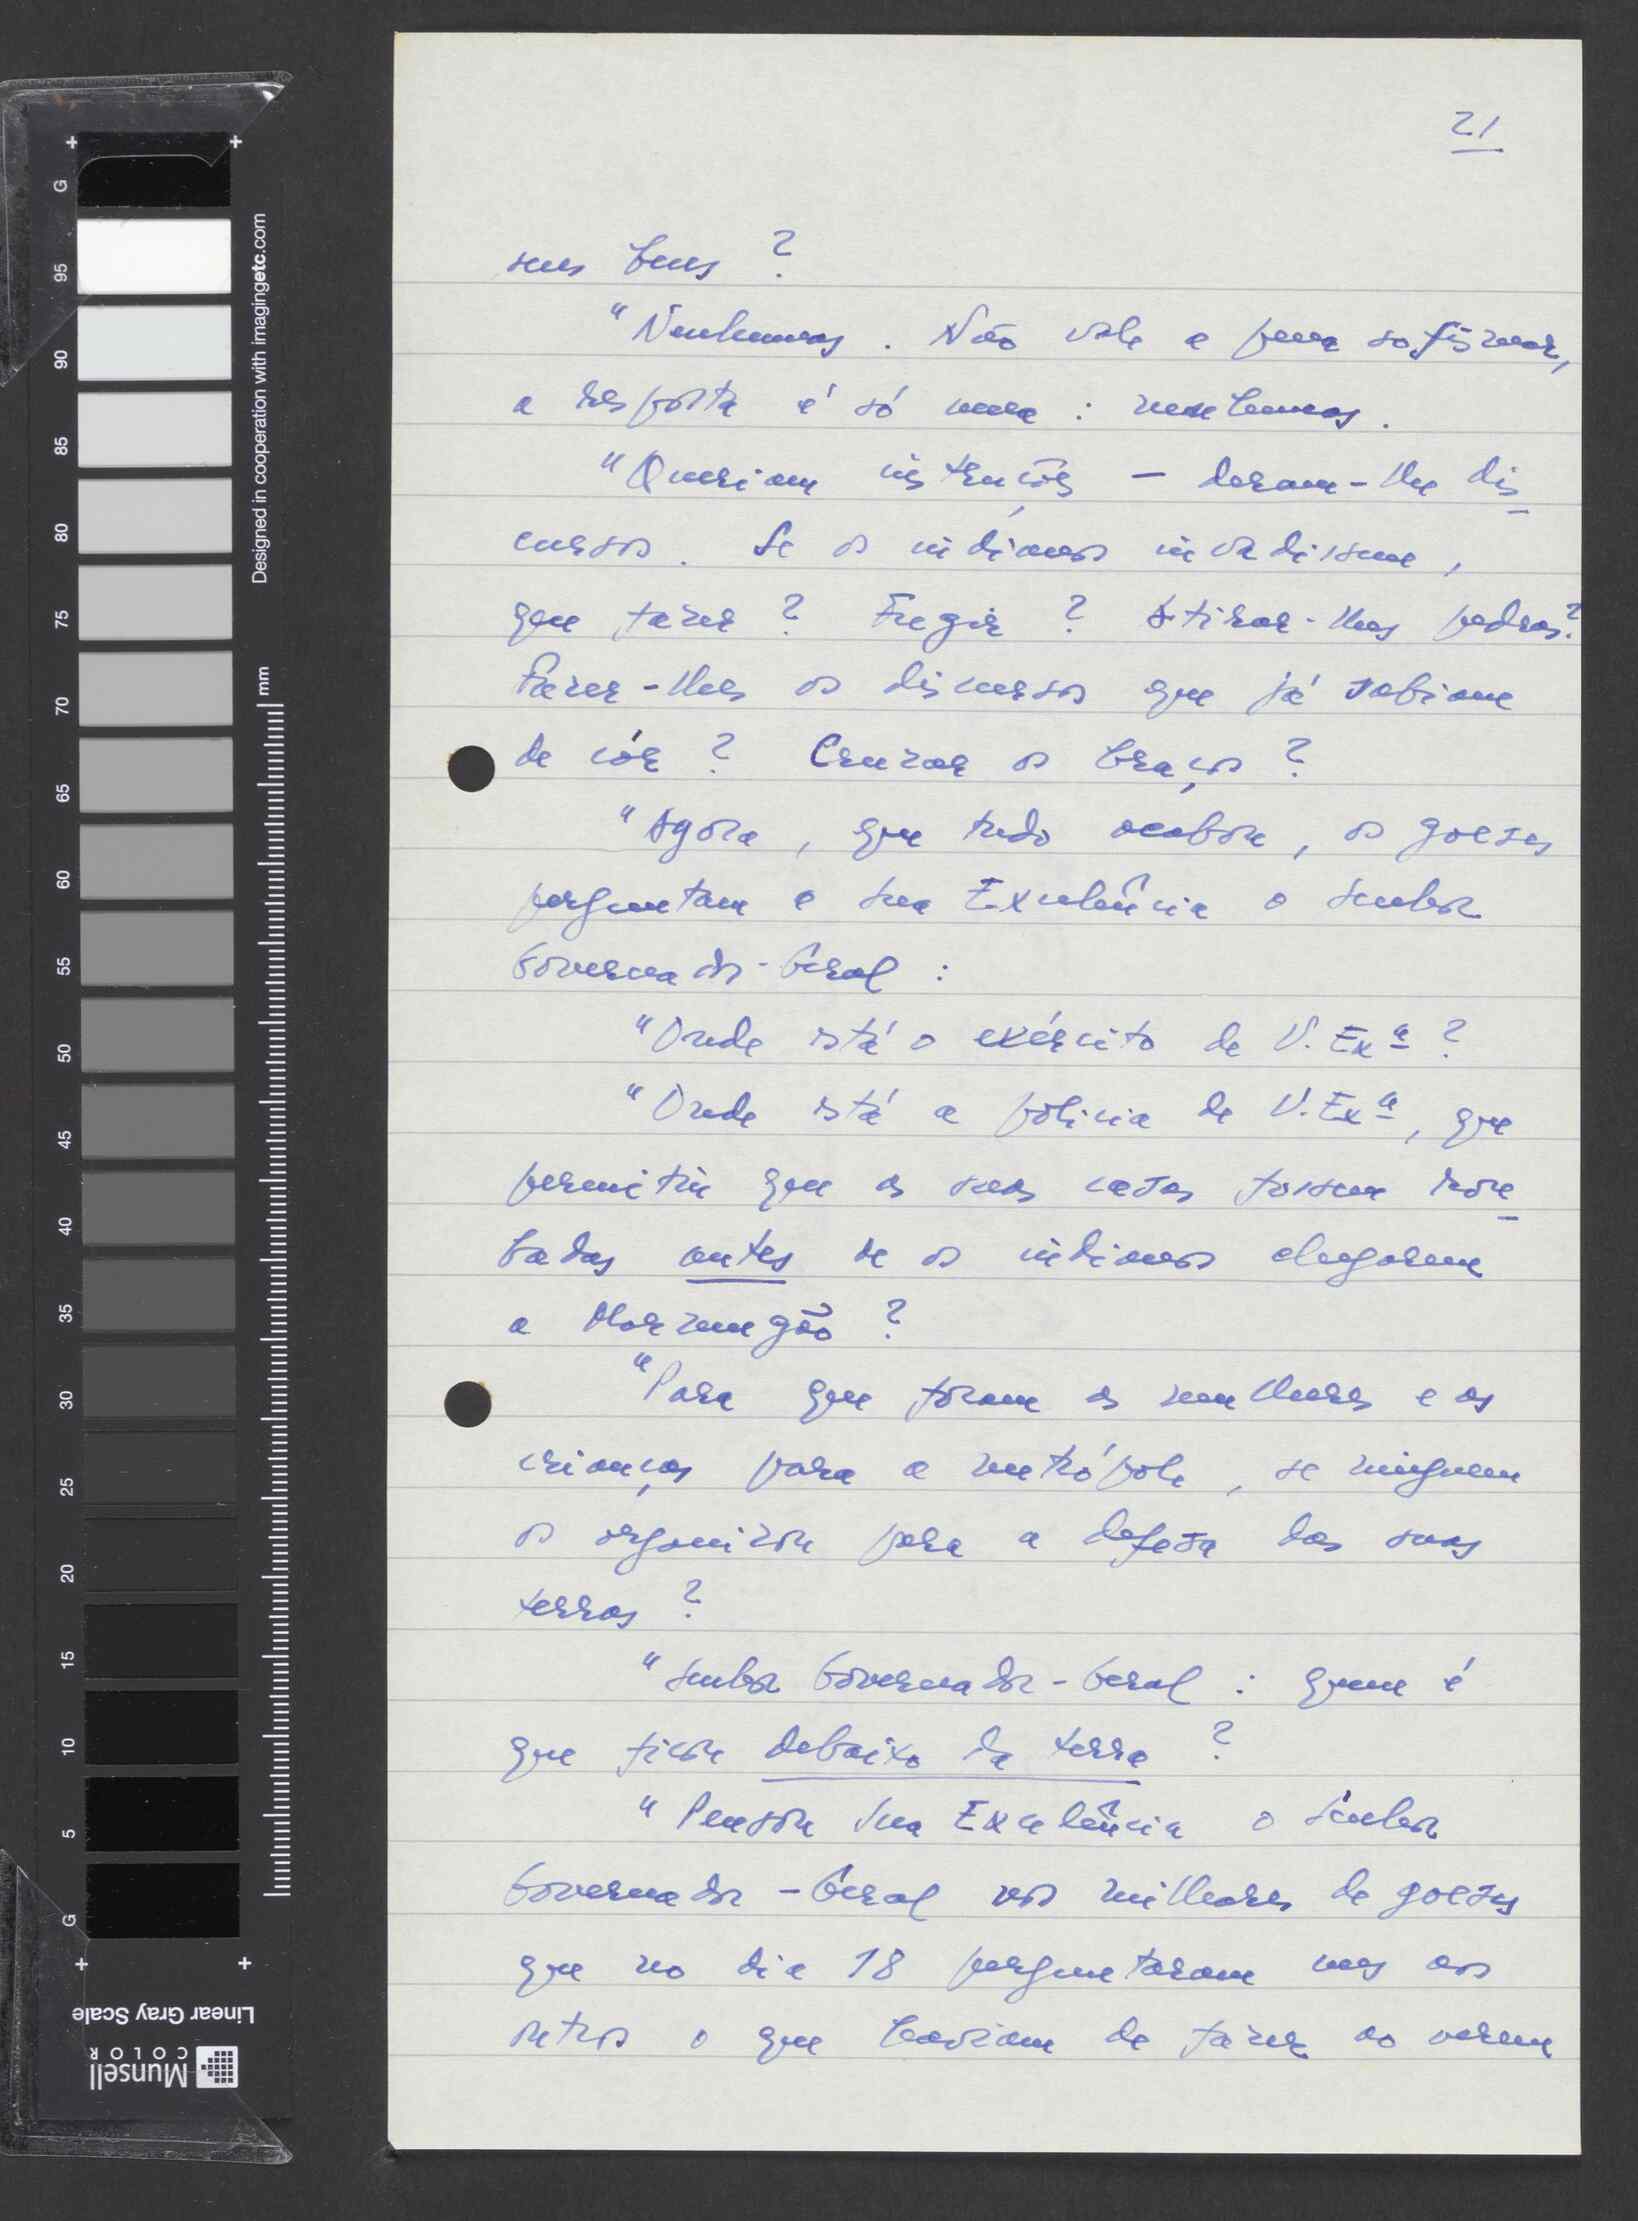 21
seus bens ?
"Nenhumas. Não vale a pena sofismar,
a resposta é só uma : nenhumas.
"Queriam instruções – deram-lhe dis-
cursos. Se os indianos invadissem,
que fazer ? Fugir ? Atirar-lhes pedras ?
Fazer-lhes os discursos que já sabiam
de cór ? Cruzar os braços ?
"Agora, que tudo acabou, os goeses
perguntam a Sua Excelência o Senhor
Governador-Geral :
"Onde está o exército de V. Exª ?
"Onde está a polícia de V. Exª, que
permitiu que as suas casas fossem rou-
badas antes de os indianos chegarem
a Mormugão ?
"Para que foram as mulheres e as
crianças para a metrópole, se ninguem
os organizou para a defesa das suas
terras ?
"Senhor Governador-Geral : quem é
que ficou debaixo da terra ?
"Pensou Sua Excelência o Senhor
Governador-Geral nos milhares de goeses
que no dia 18 perguntaram uns aos
outros o que haviam de fazer ao verem
G
95
90
85
80
75
70
65
60
55
50
45
40
35
30
25
20
15
10
5
G
Designed in cooperation with imagingetc.com
mm
Linear Gray Scale
Munsell
COLOR